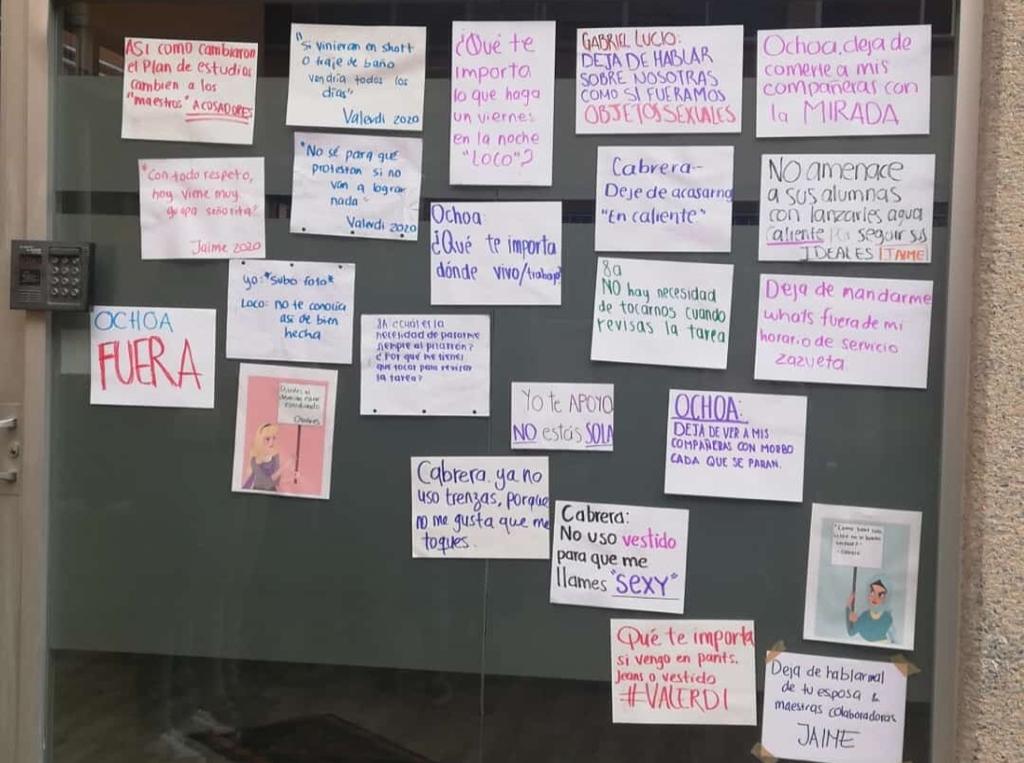 ASI como cambiaron
el Plan de estudios
cambien a los
"maestros" ACOSADORES
"Si vinieran en short
o traje de baño
vendría todos los
días"
Valerdi 2020
¿Qué te
importa
lo que haga
un viernes
en la noche
"LOCO"?
GABRIEL LUCIO:
DEJA DE HABLAR
SOBRE NOSOTRAS
COMO SI FUERAMOS
OBJETOS SEXUALES
Ochoa, deja de
comerte a mis
compañeras con
la MIRADA
"Con todo respeto,
hoy viene muy
guapa señorita"
Jaime 2020
"No sé para qué
protestan si no
van a lograr
nada"
Valerdi 2020
Ochoa:
¿Qué te importa
dónde vivo/trabajo
Cabrera-
Deje de acosarnos
"En caliente"
NO amenace
a sus alumnas
con lanzarles agua
caliente seguir sus
IDEALES JAIME
OCHOA
FUERA
yo: *Subo foto*
Loco: no te conocía
así de bien
hecha
¿cuál es la
necesidad de pasarme
siempre al pizarrón?
¿Por qué me tienes
que tocar para revisar
la tarea?
NO hay necesidad
de tocarnos cuando
revisas la tarea
Deja de mandarme
whats fuera de mi
horario de servicio
zazueta
Yo te APOYO
NO estás SOLA
OCHOA:
DEJA DE VER A MIS
COMPAÑERAS CON MORBO
CADA QUE SE PARAN.
Cabrera, ya no
uso trenzas, porque
no me gusta que me
toques.
Cabrera:
No uso vestido
para que me
llames "SEXY"
Qué te importa
si vengo en pants,
jeans o vestido
#VALERDI
Deja de hablar mal
de tu esposa &
maestras colaboradoras
JAIME